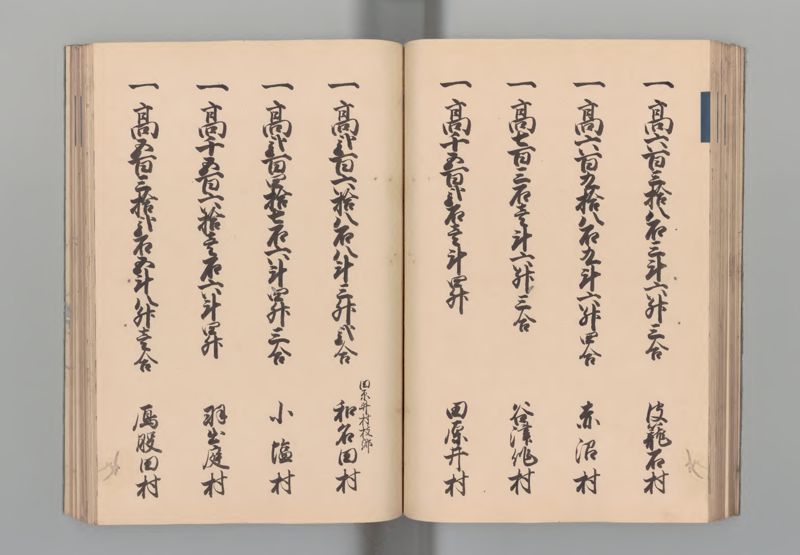 一 高六百三拾八石三斗六升三合 皮籠石村
一 高六百九拾八石九斗六升四合 赤沼村
一 高七百三石壱斗六升三合 谷津作村
一 高千五百弐石壱斗四升 田原井村
田原井村枝郷
一 高弐百六拾八石八斗三升弐合 和名田村
一 高弐百四拾七石六斗四升三合 小塩村
一 高千五百六拾壱石六斗四升 羽出庭村
一 高五百三拾弐石五斗八升壱合 鴈股田村